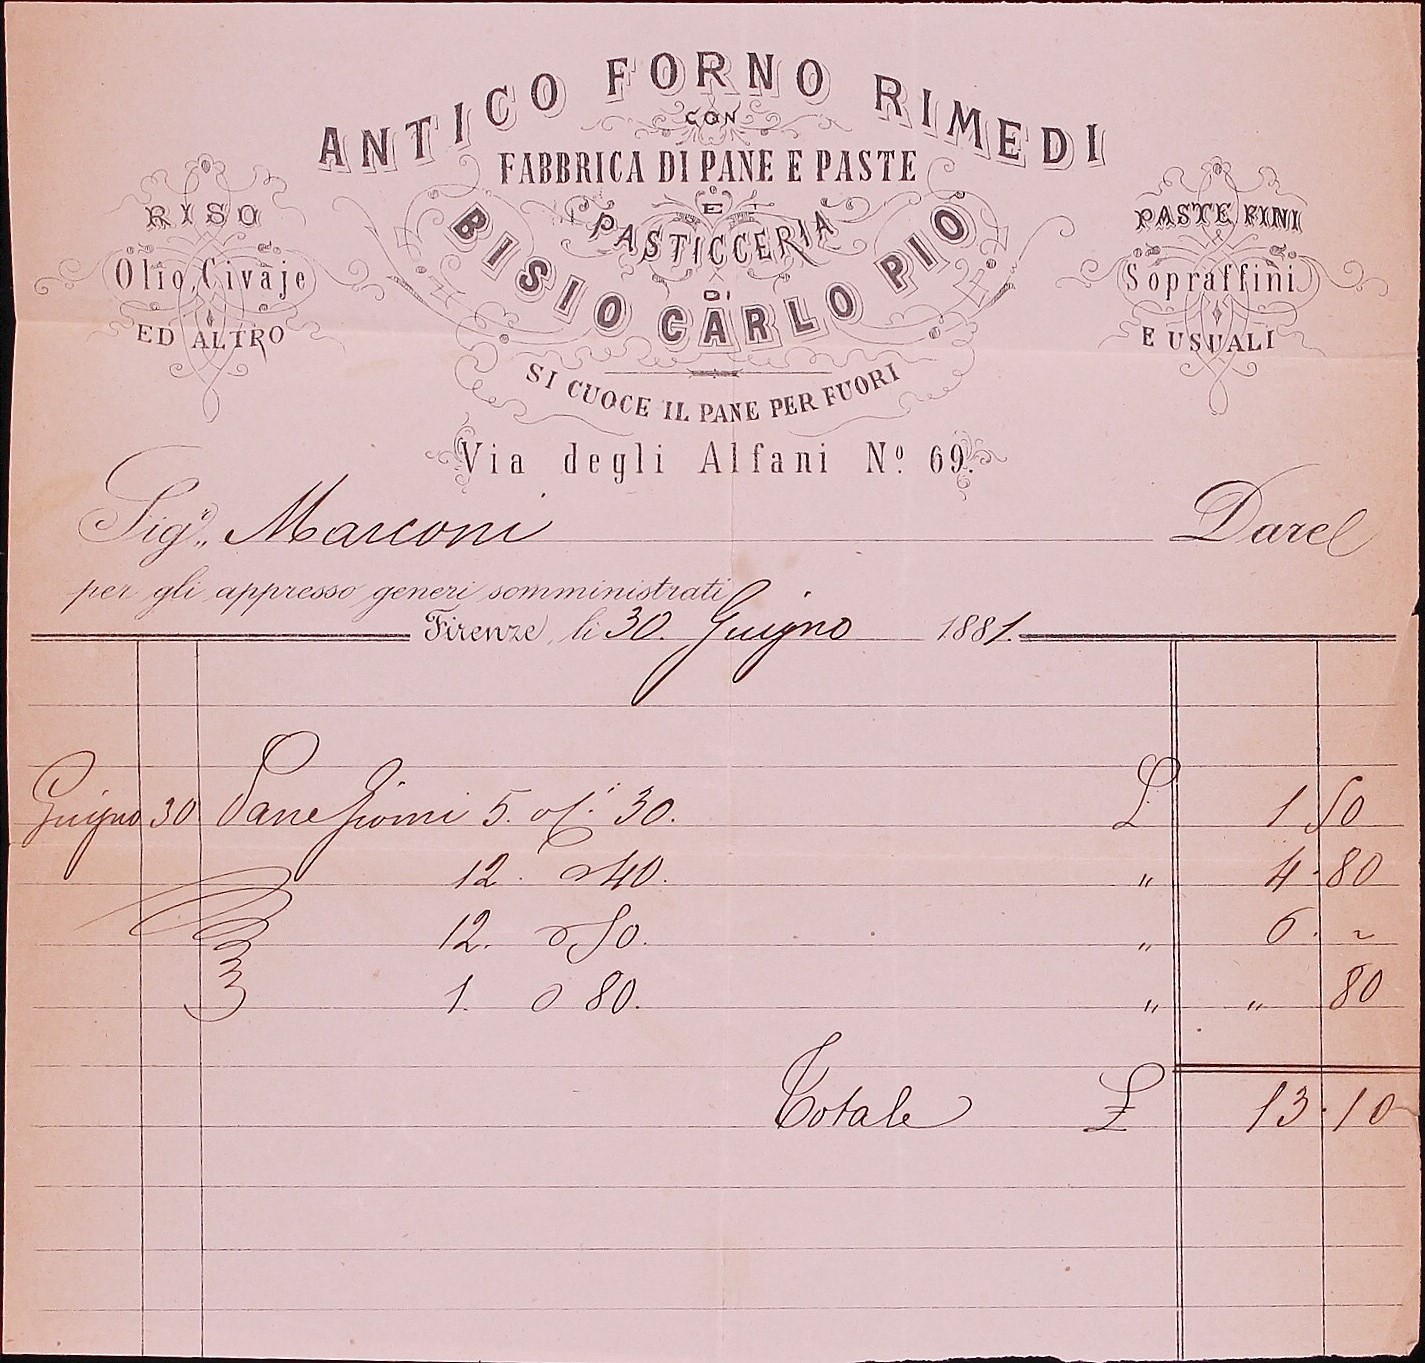 ANTICO FORNO RIMEDI
CON
FABBRICA DI PANE E PASTE
E
PASTICCERIA
DI
BISIO CARLO PIO
SI CUOCE IL PANE PER FUORI
RISO
Olio, Civaje
ED ALTRO
PASTE FINI
Sopraffini
E USUALI
Via degli Alfani Nº 69.
Sigr. Marconi Dare
per gli appresso generi somministrati
Firenze, li 30. Giugno 1881.
Giugno 30 Pane Giorni 5. 30. L. 1 50
12. 40. " 4.80
12. 50. " 6. ~
1. 80. " " 80
Totale £ 13.10